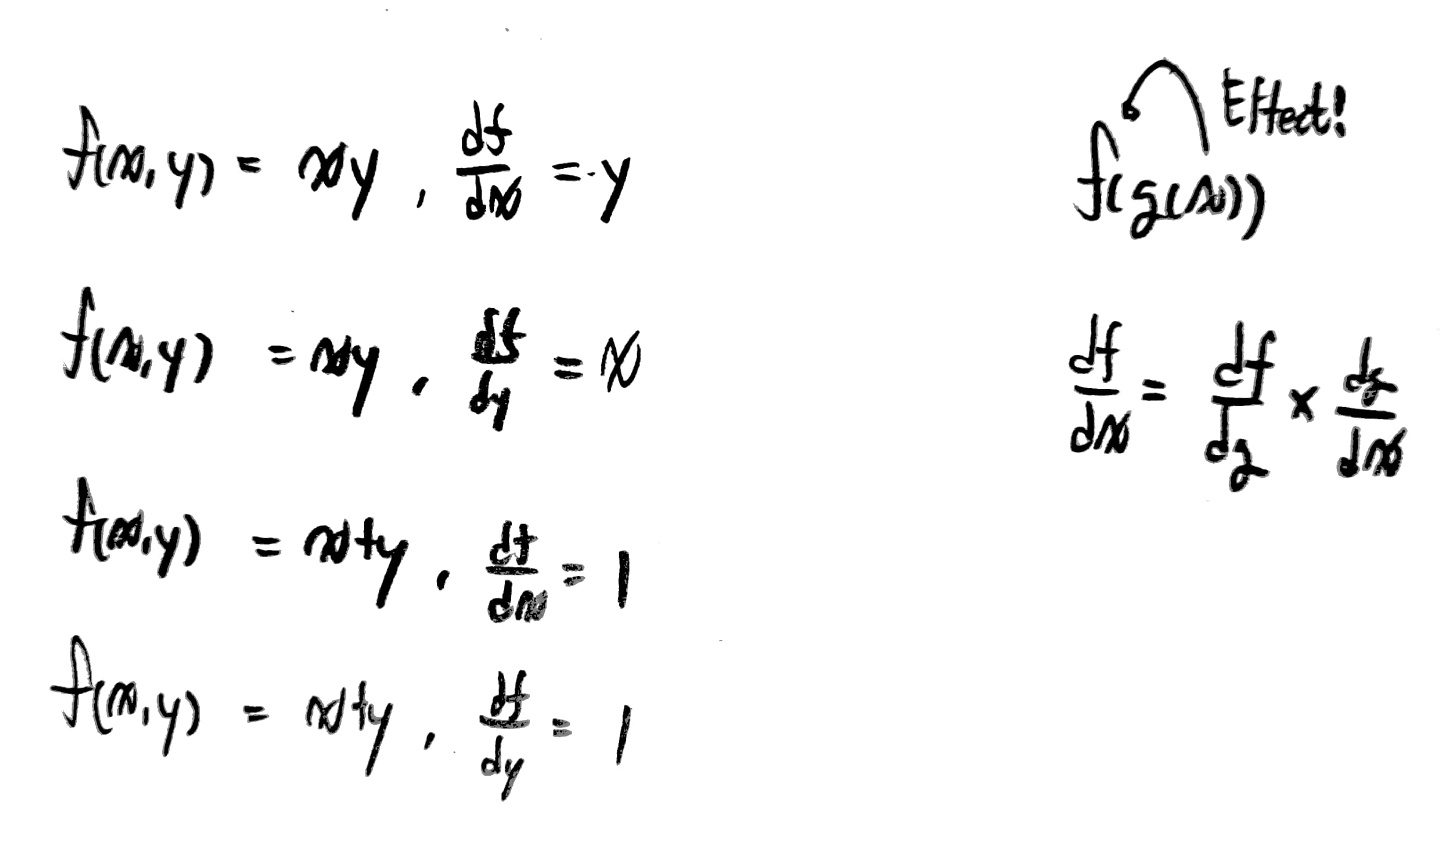 f(x,y) = xy , df/dx = y
f(x,y) = xy , df/dy = x
f(x,y) = x+y , df/dx = 1
f(x,y) = x+y , df/dy = 1
Effect!
f(g(x))
df/dx = df/dg × dg/dx